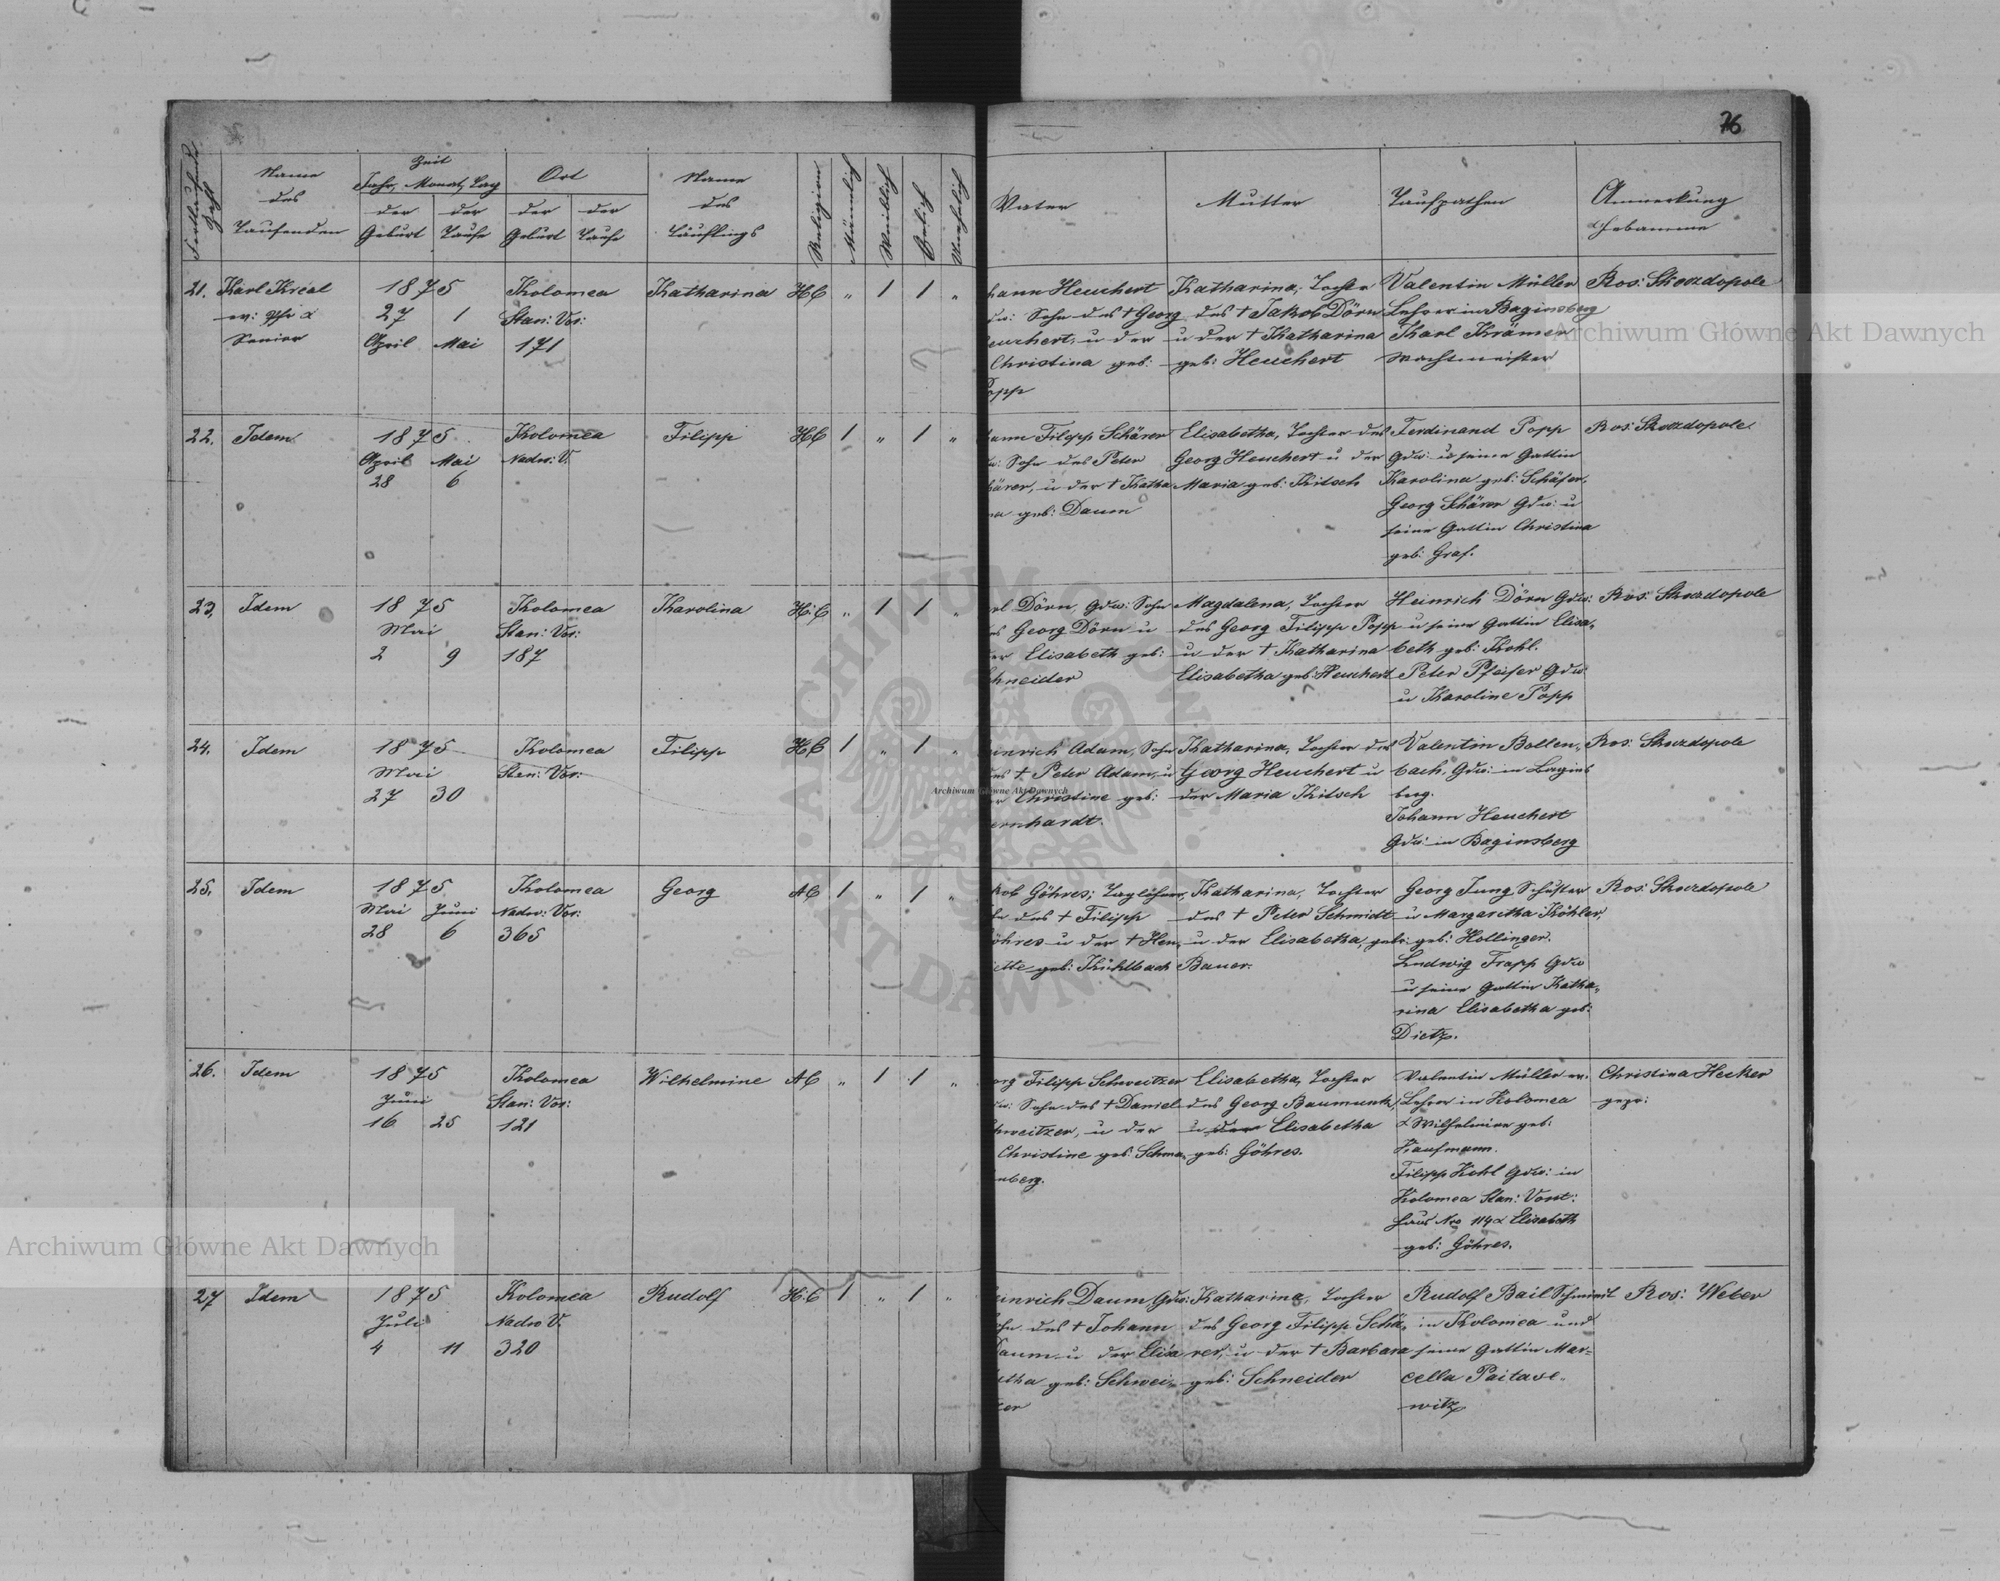 76
Fortlaufende Zahl
Name des Taufenden
Zeit
Jahr, Monat, Tag
der Geburt
der Taufe
Ort
der Geburt
der Taufe
Name des Täuflings
Religion
Männlich
Weiblich
Ehelich
Unehelich
Vater
Mutter
Taufpathen
Anmerkung
Hebamme
21. Karl Kréal
ev: Pfr &
Senior
1875
27 1
April Mai
Kolomea
Stan: Vor:
171
Katharina
HC " 1 1 "
hann Heuchert
Sohn des † Georg
euchert, u der
Christina geb:
opp
Katharina, Tochter
des † Jakob Dörn
u der † Katharina
geb: Heuchert
Valentin Müller
Lehrer in Baginsberg
Karl Krämer
Wachtmeister
Ros: Skozdopole
22. Idem
1875
April Mai
28 6
Kolomea
Nadw: V.
Filipp
HC 1 " 1 "
ann Filipp Schärer
Sohn des Peter
härer, u der † Katha
na geb: Daum
Elisabetha, Tochter des
Georg Heuchert u der
Maria geb: Kitsch
Ferdinand Popp
Gdw: u seine Gattin
Karolina geb: Schäfer.
Georg Schärer Gdw: u
seine Gattin Christina
geb: Graf.
Ros: Skozdopole
23, Idem
1875
Mai
2 9
Kolomea
Stan: Vor:
187
Karolina
H:C " 1 1 "
rl Dörn, Gdw: Sohn
es Georg Dörn u
der Elisabeth geb:
chneider
Magdalena, Tochter
des Georg Filipp Popp
u der † Katharina
Elisabetha geb: Heuchert
Heinrich Dörn Gdw:
u seine Gattin Elisa„
beth geb: Kohl.
Peter Pfeifer Gdw:
u Karoline Popp
Ros: Skozdopole
24. Idem
1875
Mai
27 30
Kolomea
Stan: Vor:
Filipp
HC 1 " 1 "
einrich Adam, Sohn
des † Peter Adam, u
er Christine geb:
ernhardt.
Katharina, Tochter des
Georg Heuchert u
der Maria Kitsch
Valentin Bollen„
bach, Gdw: in Bagins
berg.
Johann Heuchert
Gdw: in Baginsberg
Ros: Skozdopole
25. Idem
1875
Mai Juni
28 6
Kolomea
Nadw: Vor:
365
Georg
AC 1 " 1 "
kob Göhres, Taglöhner,
des † Filipp
öhres u der † Hen„
iette geb: Kühlbach
Katharina, Tochter
des † Peter Schmidt
u der Elisabetha, geb:
Bauer.
Georg Jung Schuster
u Margaretha Köhler,
geb: Hollinger.
Ludwig Trapp Gdw
u seine Gattin Katha„
rina Elisabetha geb:
Dietz.
Ros: Skozdopole
26. Idem
1875
Juni
16 25
Kolomea
Stan: Vor:
121
Wilhelmine
AC " 1 1 "
org Filipp Schweitzer
Sohn des † Daniel
chweitzer, u der
Christine geb: Schma„
nberg.
Elisabetha, Tochter
des Georg Baumunk,
u der Elisabetha
geb: Göhres.
Valentin Müller ev:
Lehrer in Kolomea
& Wilhelmine geb:
Kaufmann.
Filipp Kehl Gdw: in
Kolomea Stan: Vorst:
Haus Nro 119 & Elisabeth
geb: Göhres.
Christina Hecker
gepr:
27 Idem
1875
Juli
4 11
Kolomea
Nadw V.
320
Rudolf
H:C 1 " 1 "
einrich Daum Gdw:
ohn des † Johann
Daum u der Elisa
etha geb: Schwei„
zer
Katharina, Tochter
des Georg Filipp Schä„
rer, u der † Barbara
geb: Schneider
Rudolf Bail Schmied
in Kolomea und
seine Gattin Mar=
cella Paitase„
witz
Ros: Weber
Archiwum Główne Akt Dawnych
Archiwum Główne Akt Dawnych
Archiwum Główne Akt Dawnych